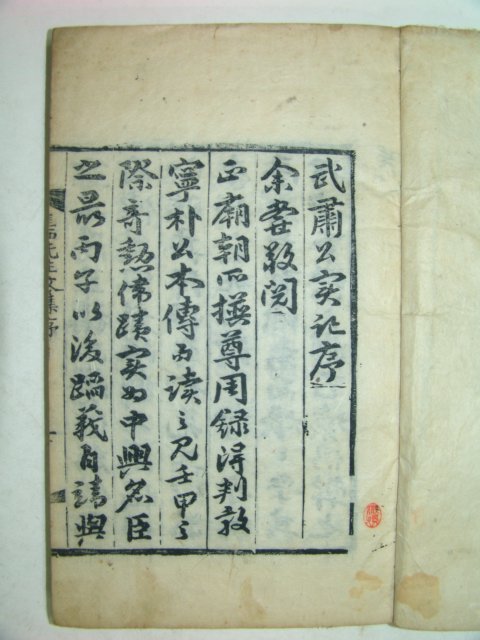 武肅公實記序
余嘗敬閱
正廟朝所撰尊周錄得判敦
寧朴公本傳而讀之見壬甲之
際奇勳偉蹟實如中興名臣
之最丙子以後蹈義自靖與